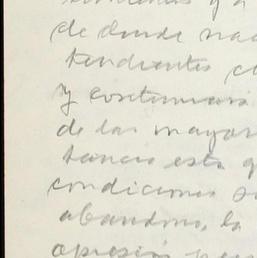 y a
de donde nac
tendientes c
y costumbres
de las mayor
tancia esta q
condiciones s
abandono, la
opresión per